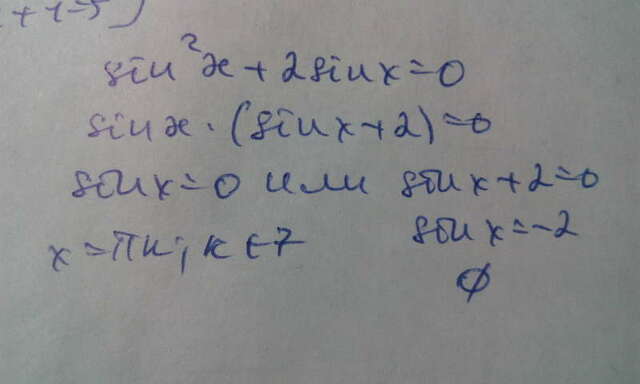 sin²x + 2sinx = 0
sinx · (sinx + 2) = 0
sinx = 0 или sinx + 2 = 0
x = πк; к ∈ Z sinx = -2
∅